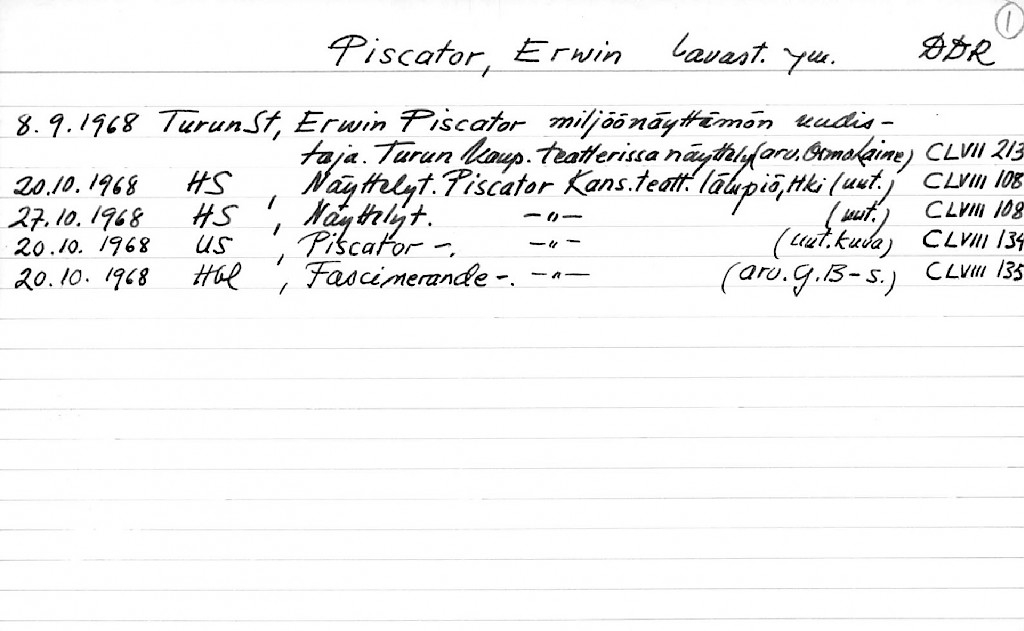 1
Piscator, Erwin Lavast. ym. DDR
8.9.1968 TurunSt, Erwin Piscator miljöönäyttämön uudis-
taja. Turun Kaup. teatterissa näyttely (arv. Osmo Laine) CLVII 213
20.10.1968 HS, Näyttelyt. Piscator Kans. teatt. lämpiö, Hki (uut.) CLVIII 108
27.10.1968 HS, Näyttelyt. -"- (uut.) CLVIII 108
20.10.1968 US, Piscator -. -"- (uut. kuva) CLVIII 134
20.10.1968 Hbl, Fascimerande -. -"- (arv. G.B-s.) CLVIII 135